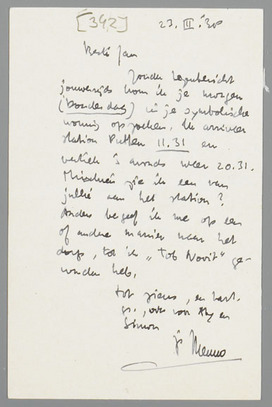 [392]
23.II.'38
Beste Jan
Zonder tegenbericht
jouwerzijds kom ik je morgen
(Donderdag) in je symbolische
woning opzoeken. Ik arriveer
station Putten 11.31 en
vertrek 's avonds weer 20.31.
Misschien zie ik een van
jullie aan het station?
Anders begeef ik me op een
of andere manier naar het
dorp, tot ik "Tob Novit" ge-
vonden heb.
tot ziens, en hart.
gr., ook voor en
Simon
je Menno